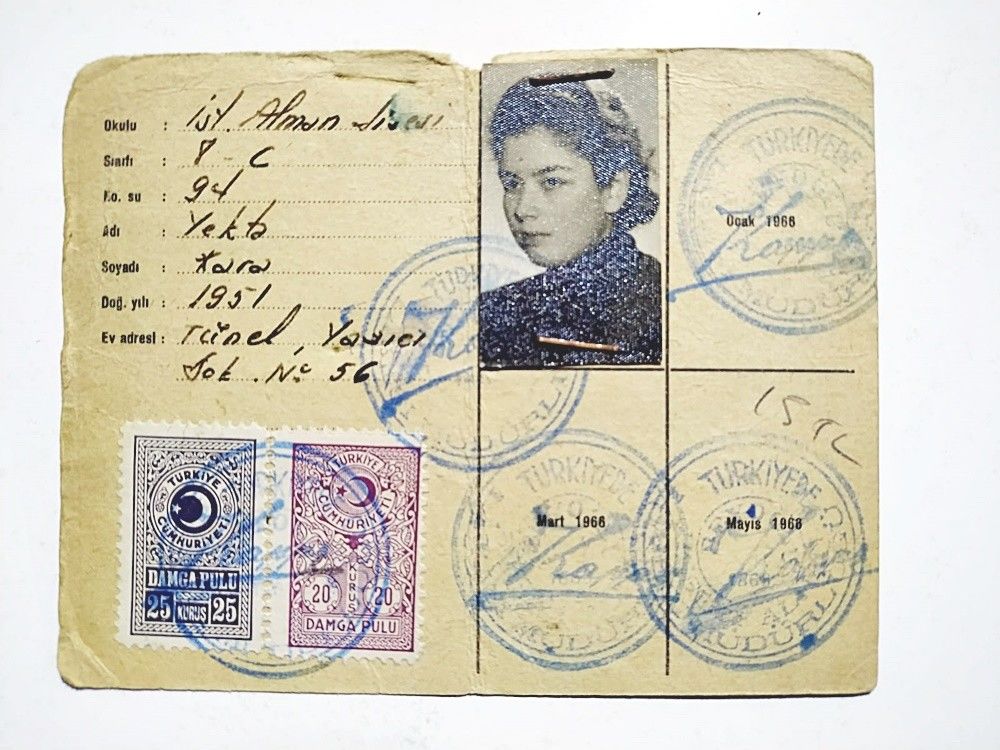 Okulu : İst. Alman Lisesi
Sınıfı : 8 - C
No. su : 94
Adı : Yekta
Soyadı : Kara
Doğ. yılı : 1951
Ev adresi : Tünel, Yazıcı
Sok. Nº 56
TÜRKİYE
CUMHURİYETİ
DAMGA PULU
25 KURUŞ 25
TÜRKİYE
CUMHURİYETİ
20 KURUŞ 20
DAMGA PULU
TÜRKİYEDE
Ocak 1966
MÜDÜR
15 TL
TÜRKİYEDE
Mart 1966
MÜDÜRL
TÜRKİYEDE
Mayıs 1966
MÜDÜRL
MÜDÜRL